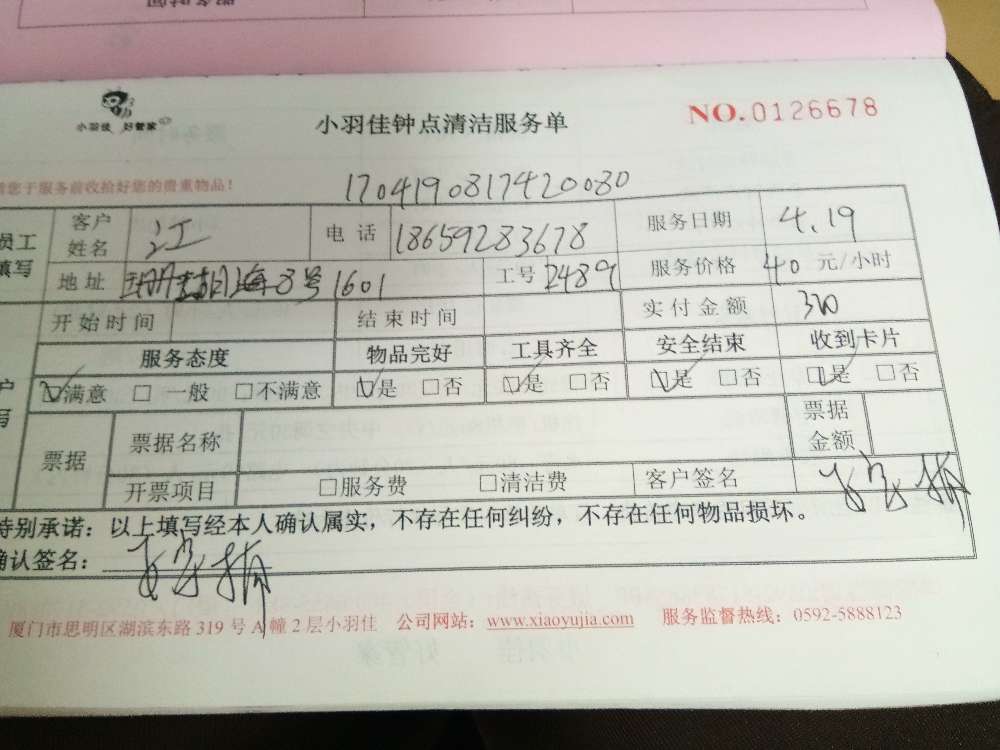 服务时间
小羽佳 好管家
小羽佳钟点清洁服务单
NO.0126678
请您于服务前收拾好您的贵重物品！
1704190817420080
员工填写 客户姓名 江 电话 18659283678 服务日期 4.19
地址 海8号1601 工号 2489 服务价格 40 元/小时
开始时间 结束时间 实付金额 320
服务态度 物品完好 工具齐全 安全结束 收到卡片
☑满意 □一般 □不满意 ☑是 □否 ☑是 □否 ☑是 □否 ☑是 □否
票据 票据名称 票据金额
开票项目 □服务费 □清洁费 客户签名
特别承诺：以上填写经本人确认属实，不存在任何纠纷，不存在任何物品损坏。
确认签名：
厦门市思明区湖滨东路 319 号 A 幢 2 层小羽佳 公司网站：www.xiaoyujia.com 服务监督热线：0592-5888123